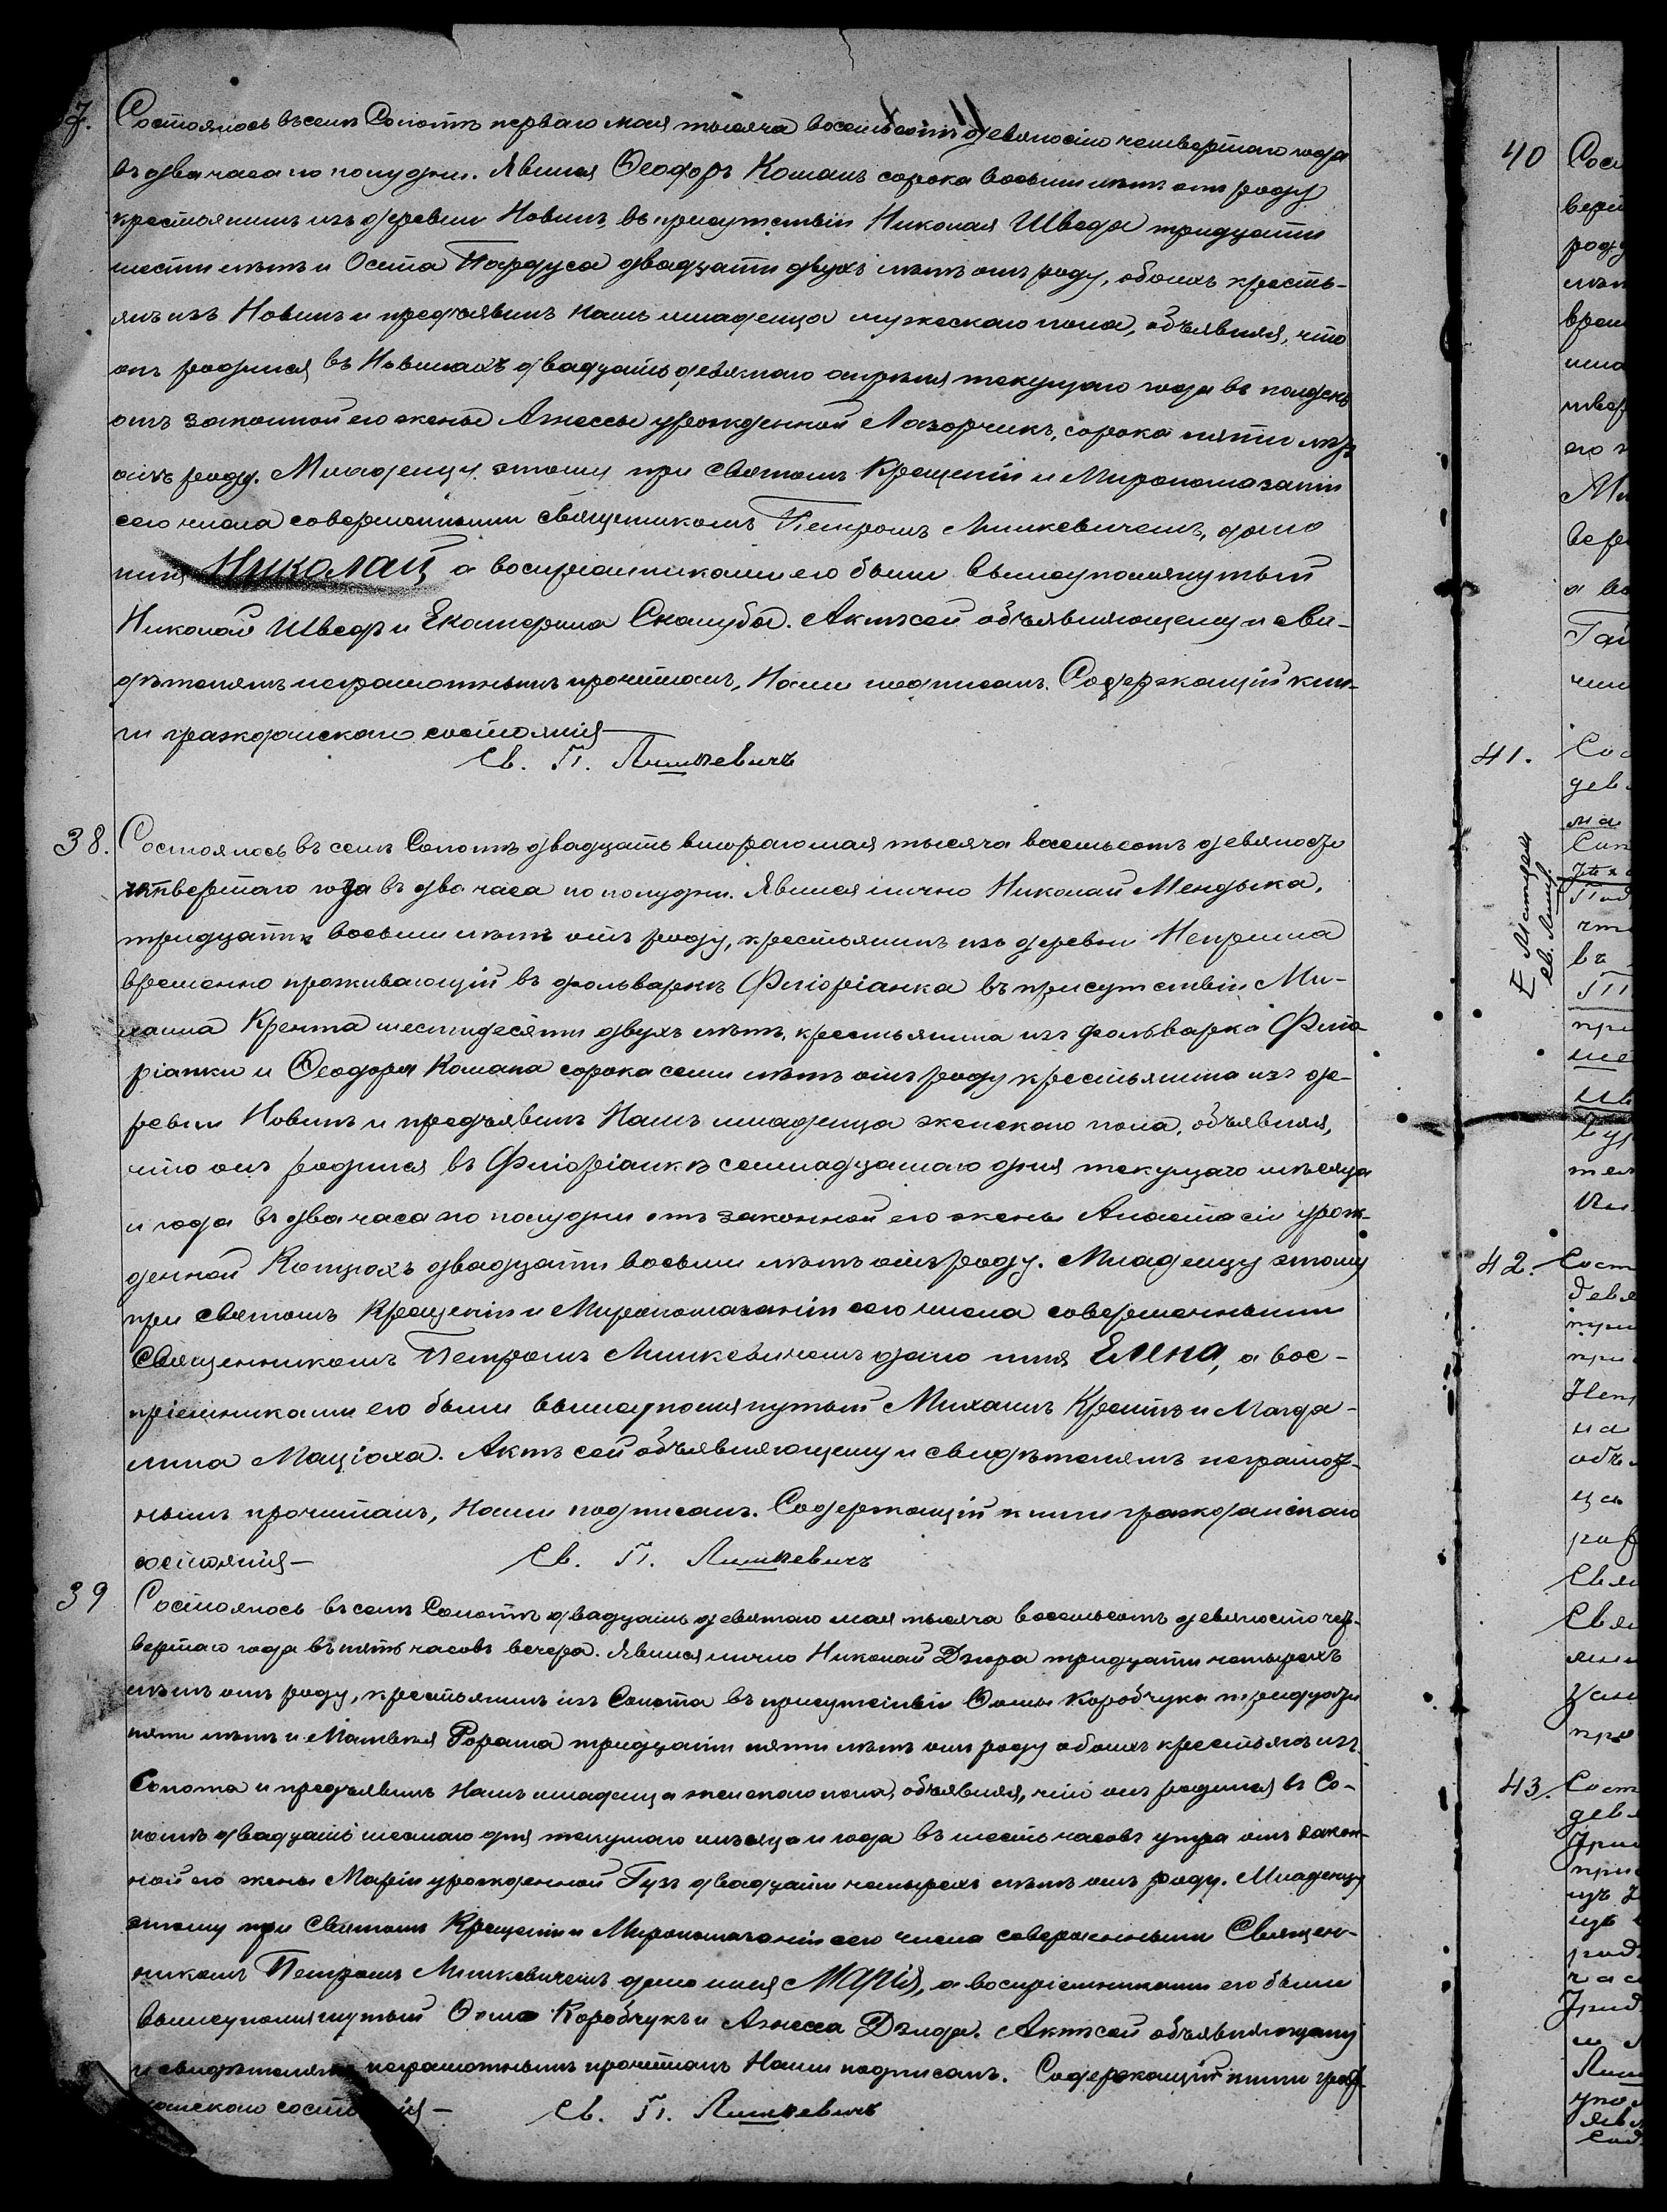 7. Состоялось въ семъ Сопотѣ перваго мая тысяча восемьсотъ девяносто четвертаго года
въ два часа по полудни. Явился Ѳеодоръ Команъ сорока восьми лѣтъ отъ роду
крестьянинъ изъ деревни Новинъ, въ присутствіи Николая Шведа тридцати
шести лѣтъ и Осипа Пардуса двадцати двухъ лѣтъ отъ роду, обоихъ кресть-
янъ изъ Новинъ и предъявилъ Намъ младенца мужескаго пола, объявляя, что
онъ родился въ Новинахъ двадцать девятаго апрѣля текущаго года въ полдень
отъ законной его жены Агнессы урожденной Лазорчикъ, сорока пяти лѣтъ
отъ роду. Младенцу этому при Святомъ Крещеніи и Миропомазаніи
сего числа совершенными Священникомъ Петромъ Линкевичемъ, дано
имя Николай, а воспріемниками его были вышеупомянутый
Николай Шведъ и Екатерина Скалуба. Актъ сей объявляющему и сви-
дѣтелямъ неграмотнымъ прочитанъ, Нами подписанъ. Содержащій кни-
ги гражданскаго состоянія—
Св. П. Линкевичъ
38. Состоялось въ семъ Сопотѣ двадцать втораго мая тысяча восемьсотъ девяносто
четвертаго года въ два часа по полудни. Явился лично Николай Мендыка,
тридцати восьми лѣтъ отъ роду, крестьянинъ изъ деревни Неприша
временно проживающій въ фольваркѣ Флоріанка въ присутствіи Ми-
хаила Крента шестидесяти двухъ лѣтъ, крестьянина изъ фольварка Фло-
ріанки и Ѳеодора Комана сорока семи лѣтъ отъ роду крестьянина изъ де-
ревни Новинъ и предъявилъ Намъ младенца женскаго пола, объявляя,
что онъ родился въ Флоріанкѣ семнадцатаго дня текущаго мѣсяца
и года въ два часа по полудни отъ законной его жены Анастасіи урож-
денной Котрахъ двадцати восьми лѣтъ отъ роду. Младенцу этому
при Святомъ Крещеніи и Миропомазаніи сего числа совершенными
Священникомъ Петромъ Линкевичемъ дано имя Елена, а вос-
пріемниками его были вышеупомянутый Михаилъ Крентъ и Магда-
лина Маціоха. Актъ сей объявляющему и свидѣтелямъ неграмот-
нымъ прочитанъ, Нами подписанъ. Содержащій книги гражданскаго
состоянія— Св. П. Линкевичъ
39 Состоялось въ семъ Сопотѣ двадцать девятаго мая тысяча восемьсотъ девяносто чет-
вертаго года въ пять часовъ вечера. Явился лично Николай Дзюра тридцати четырехъ
лѣтъ отъ роду, крестьянинъ изъ Сопота въ присутствіи Ѳомы Коробчука тридцати
пяти лѣтъ и Матвѣя Рораша тридцати пяти лѣтъ отъ роду обоихъ крестьянъ изъ
Сопота и предъявилъ Намъ младенца женскаго пола, объявляя, что онъ родился въ Со-
потѣ двадцать шестаго дня текущаго мѣсяца и года въ шесть часовъ утра отъ закон-
ной его жены Маріи урожденной Гузъ двадцати четырехъ лѣтъ отъ роду. Младенцу
этому при Святомъ Крещеніи и Миропомазаніи сего числа совершенными Священ-
никомъ Петромъ Линкевичемъ дано имя Марія, а воспріемниками его были
вышеупомянутый Ѳома Коробчукъ и Агнеса Дзюра. Актъ сей объявляющему
и свидѣтелямъ неграмотнымъ прочитанъ Нами подписанъ. Содержащій книги граж-
данскаго состоянія— Св. П. Линкевичъ
40
41.
42.
43.